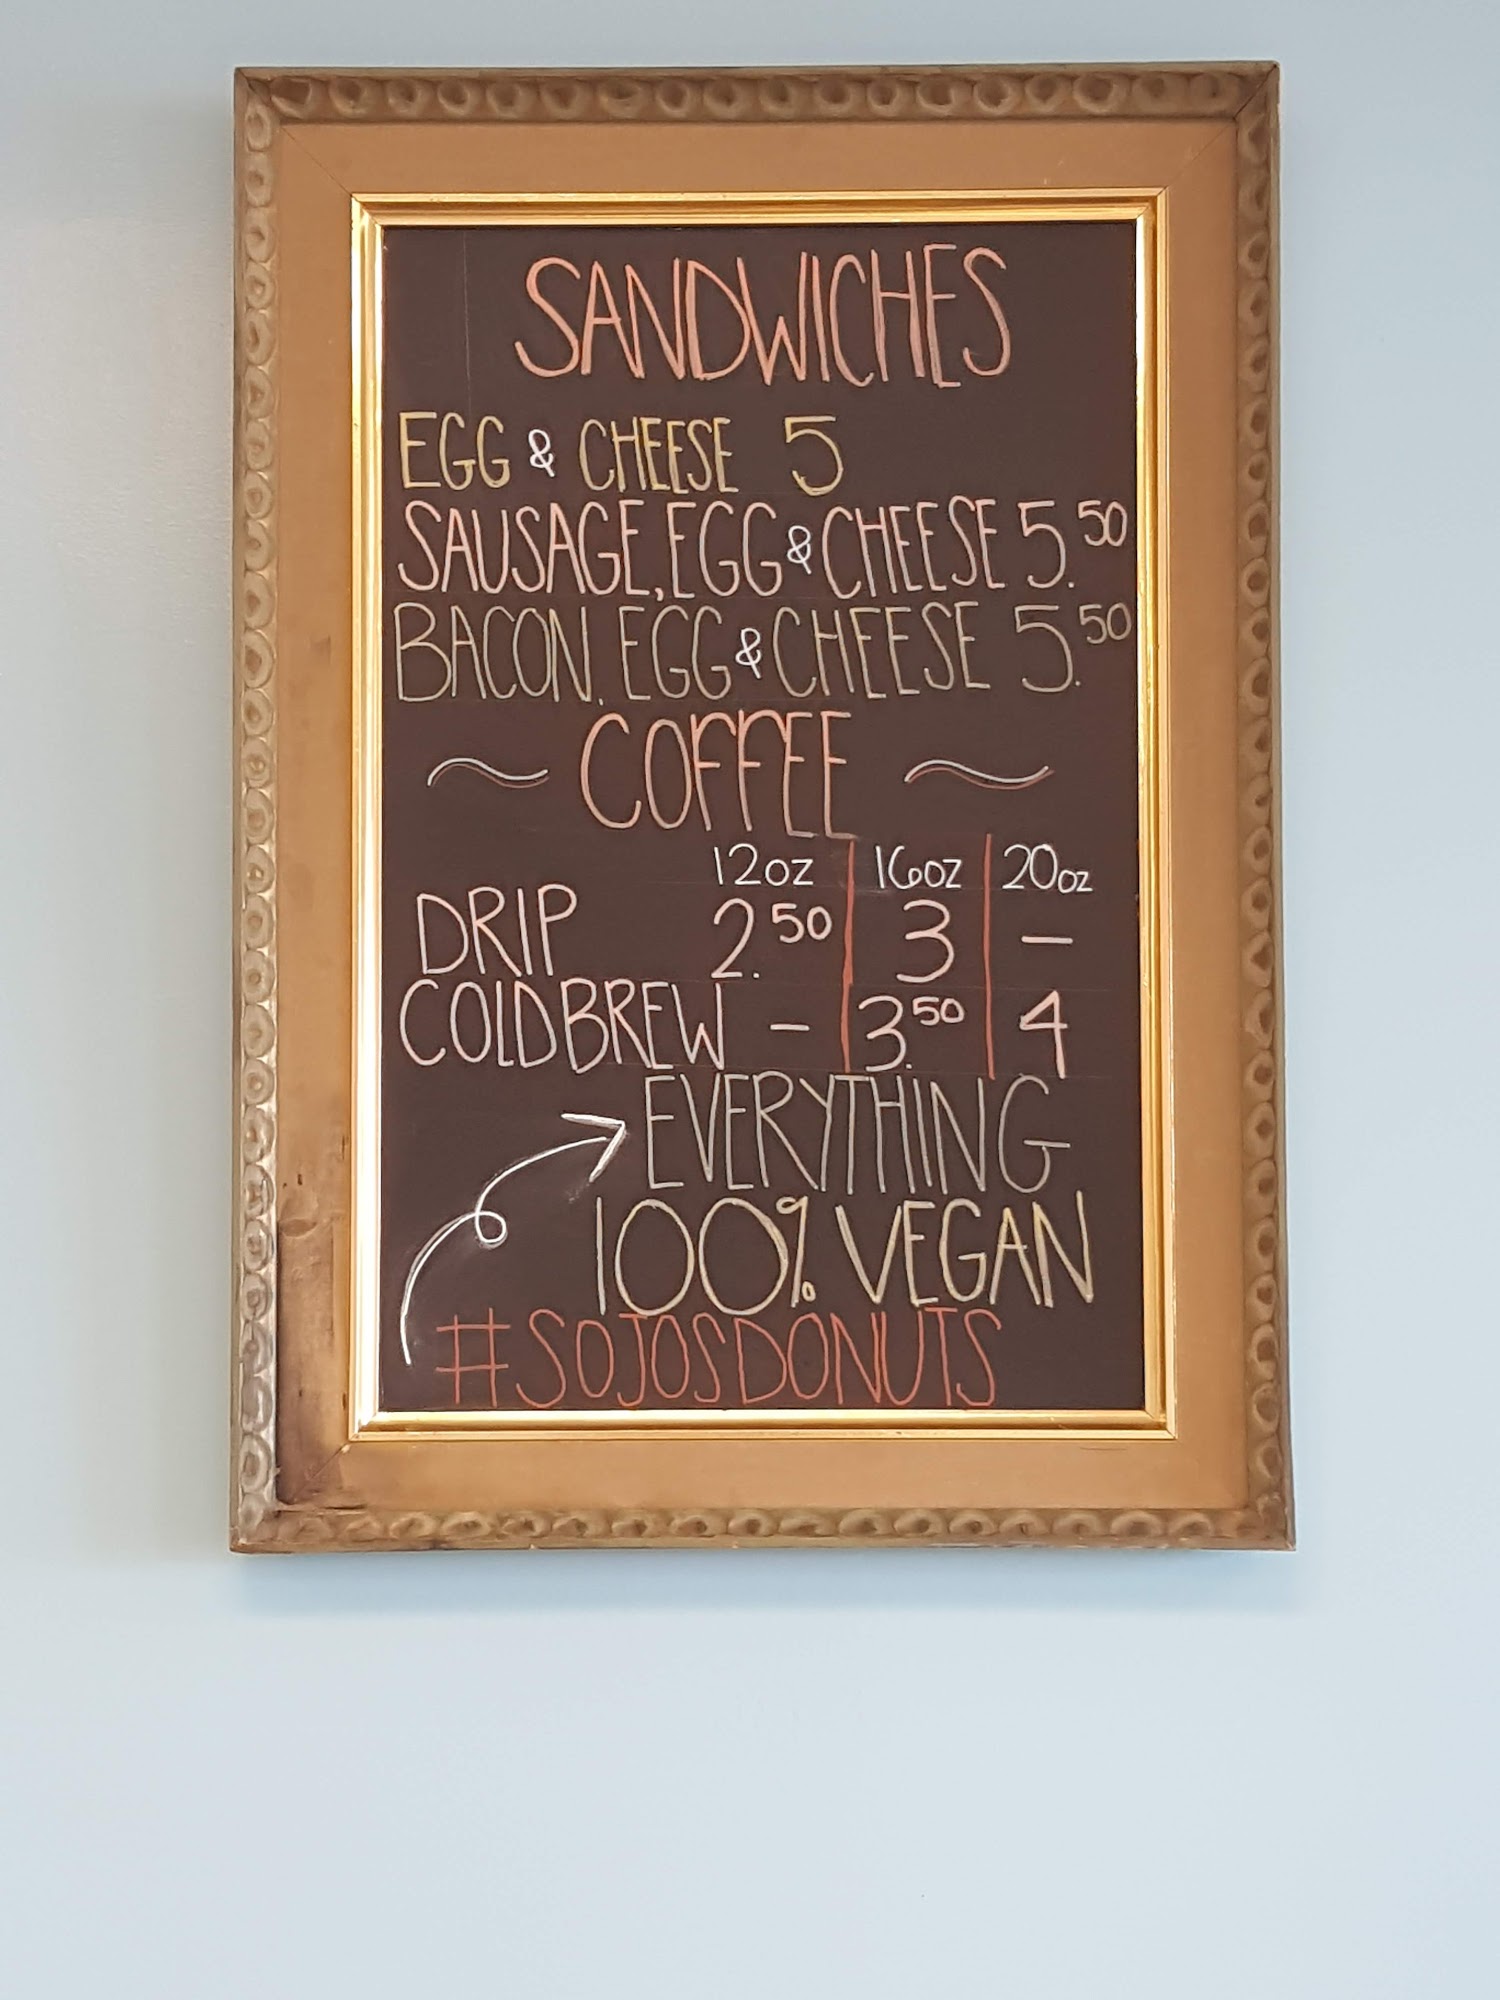 SANDWICHES
EGG & CHEESE 5
SAUSAGE, EGG & CHEESE 5.50
BACON, EGG & CHEESE 5.50
COFFEE
12oz 16oz 20oz
DRIP 2.50 3 —
COLD BREW — 3.50 4
EVERYTHING
100% VEGAN
#SOJOSDONUTS